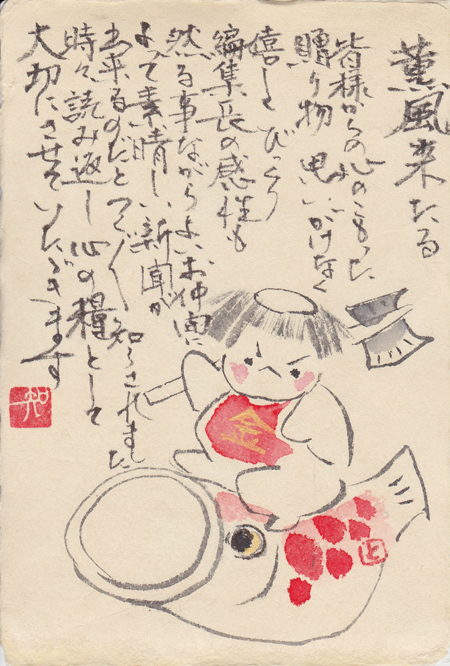 薫風来たる
皆様からの心のこもった
贈り物 思いがけなく
嬉しく びっくり
編集長の感性も
然る事ながらよいお仲間に
よって素晴しい新聞が
出来るのだとつくづく 知らされました
時々読み返し心の糧として
大切にさせていただきます
金